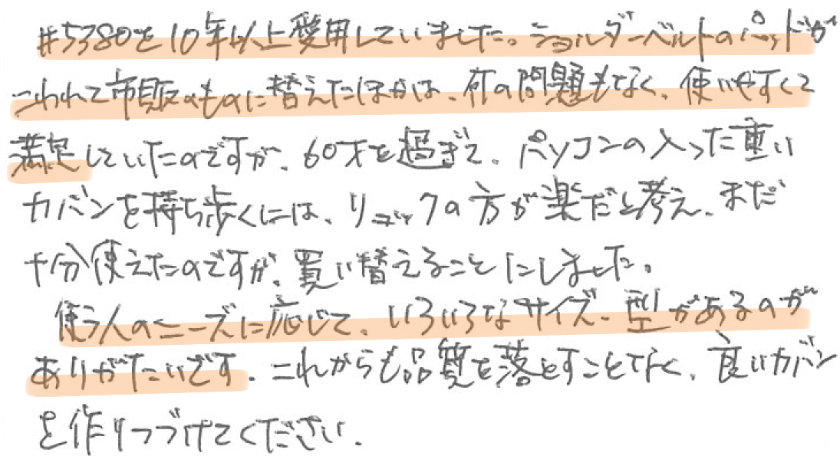 #5380を10年以上愛用していました。ショルダーベルトのパッドが
こわれて市販のものに替えたほかは、何の問題もなく、使いやすくて
満足していたのですが、60才を過ぎて、パソコンの入った重い
カバンを持ち歩くには、リュックの方が楽だと考え、まだ
十分使えたのですが、買い替えることにしました。
使う人のニーズに応じて、いろいろなサイズ、型があるのが
ありがたいです。これからも品質を落とすことなく、良いカバン
を作りつづけてください。